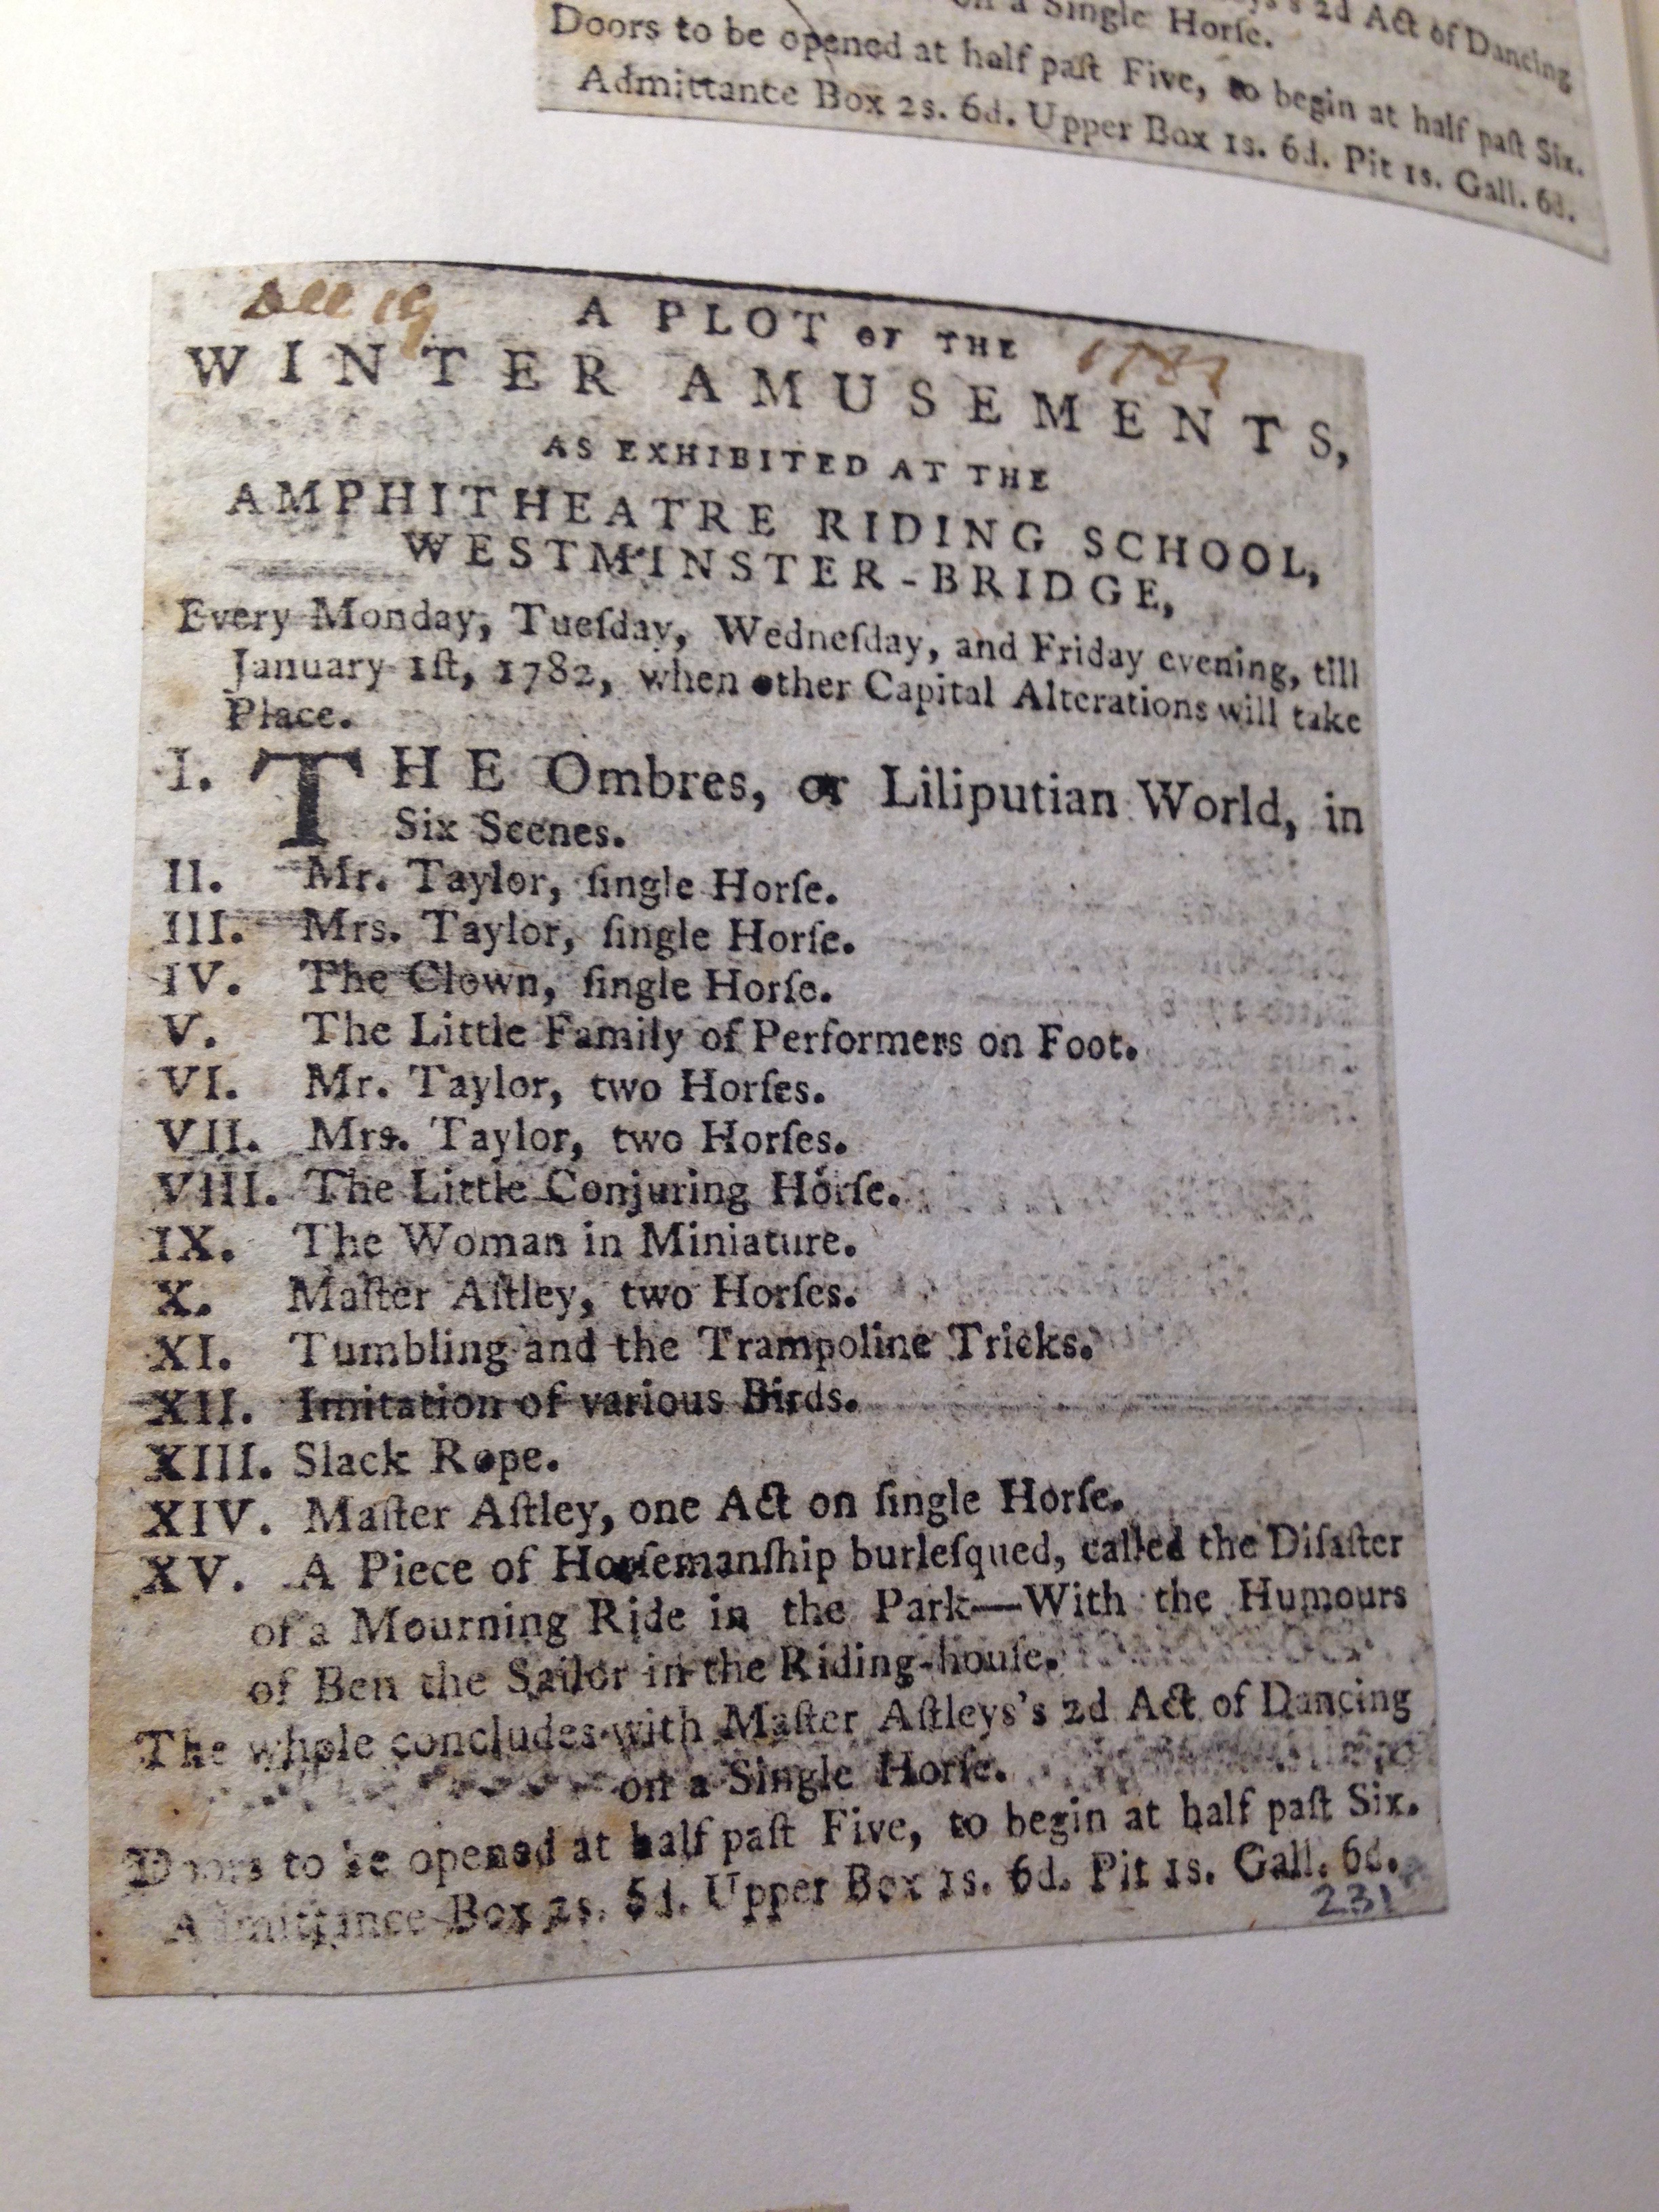 on a Single Horſe.
ys's 2d Act of Dancing
Doors to be opened at half paſt Five, to begin at half paſt Six.
Admittance Box 2s. 6d. Upper Box 1s. 6d. Pit 1s. Gall. 6d.
Dec 19
A PLOT OF THE
WINTER AMUSEMENTS,
AS EXHIBITED AT THE
AMPHITHEATRE RIDING SCHOOL,
WESTMINSTER-BRIDGE,
Every Monday, Tueſday, Wedneſday, and Friday evening, till
January 1ſt, 1782, when other Capital Alterations will take
Place.
I. THE Ombres, or Liliputian World, in
Six Scenes.
II. Mr. Taylor, ſingle Horſe.
III. Mrs. Taylor, ſingle Horſe.
IV. The Clown, ſingle Horſe.
V. The Little Family of Performers on Foot.
VI. Mr. Taylor, two Horſes.
VII. Mrs. Taylor, two Horſes.
VIII. The Little Conjuring Horſe.
IX. The Woman in Miniature.
X. Maſter Aſtley, two Horſes.
XI. Tumbling and the Trampoline Tricks.
XII. Imitation of various Birds.
XIII. Slack Rope.
XIV. Maſter Aſtley, one Act on ſingle Horſe.
XV. A Piece of Horſemanſhip burleſqued, called the Diſaſter
of a Mourning Ride in the Park—With the Humours
of Ben the Sailor in the Riding-houſe.
The whole concludes with Maſter Aſtleys's 2d Act of Dancing
on a Single Horſe.
Doors to be opened at half paſt Five, to begin at half paſt Six.
Admittance Box 2s. 6d. Upper Box 1s. 6d. Pit 1s. Gall. 6d.
231